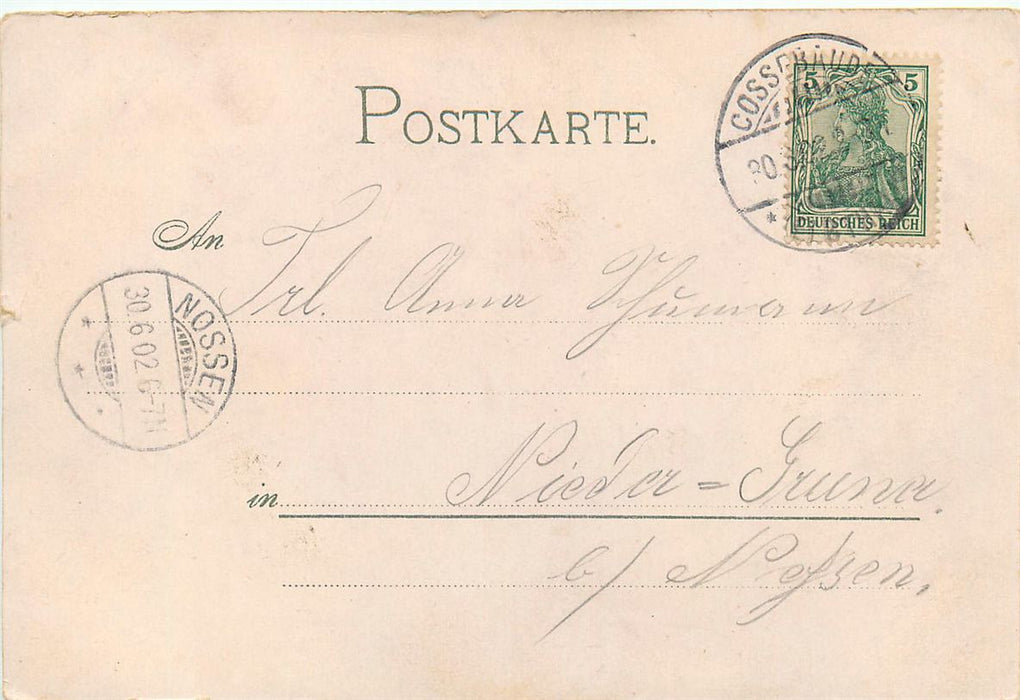 POSTKARTE.
COSSEBAUDE
5 5
DEUTSCHES REICH
An Frl. Anna Schumann
NOSSEN
30.6.02.6-7N
in Nieder=Gruna.
b/ Noßen.